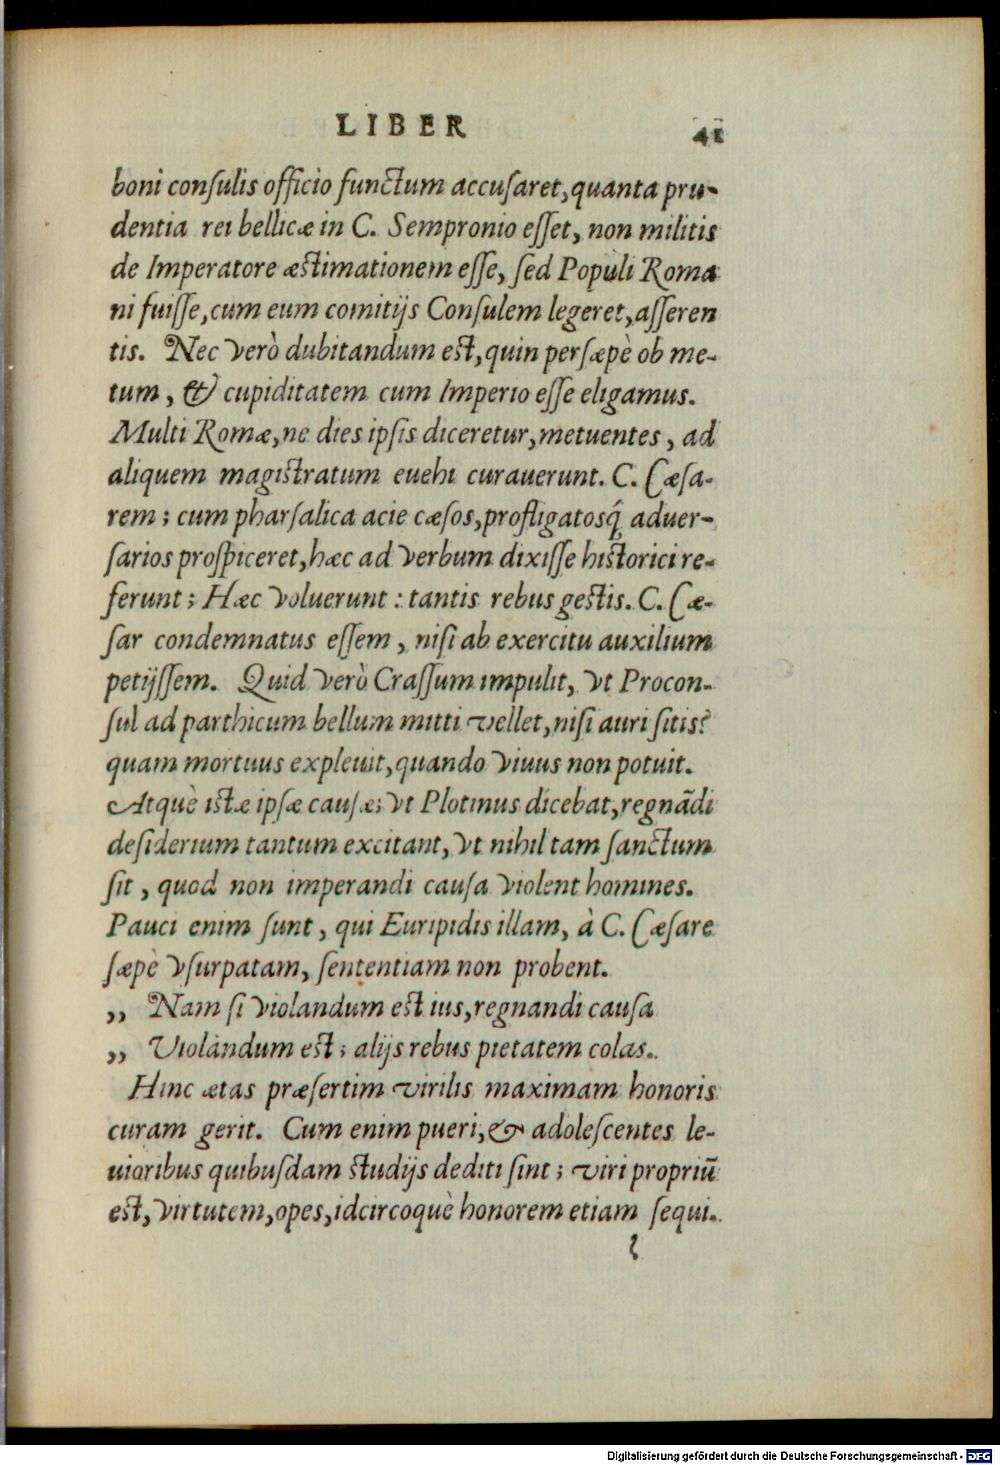 LIBER 41
boni conſulis officio functum accuſaret, quanta pru-
dentia rei bellicæ in C. Sempronio eſſet, non militis
de Imperatore æstimationem eſſe, ſed Populi Roma
ni fuiſſe, cum eum comitijs Conſulem legeret, aſſeren
tis. Nec verò dubitandum est, quin perſæpè ob me-
tum, & cupiditatem cum Imperio eſſe eligamus.
Multi Romæ, ne dies ipſis diceretur, metuentes, ad
aliquem magistratum euehi curauerunt. C. Cæſa-
rem; cum pharſalica acie cæſos, profligatosq́ aduer-
ſarios proſpiceret, hæc ad verbum dixiſſe historici re-
ferunt; Hæc voluerunt: tantis rebus gestis. C. Cæ-
ſar condemnatus eſſem, niſi ab exercitu auxilium
petijſſem. Quid verò Craſſum impulit, vt Procon-
ſul ad parthicum bellum mitti vellet, niſi auri ſitis?
quam mortuus expleuit, quando viuus non potuit.
Atquè istæ ipſæ cauſæ; vt Plotinus dicebat, regnādi
deſiderium tantum excitant, vt nihil tam ſanctum
ſit, quod non imperandi cauſa violent homines.
Pauci enim ſunt, qui Euripidis illam, à C. Cæſare
ſæpè vſurpatam, ſententiam non probent.
,, Nam ſi violandum est ius, regnandi cauſa
,, Violandum est; alijs rebus pietatem colas.
Hinc ætas præſertim virilis maximam honoris
curam gerit. Cum enim pueri, & adoleſcentes le-
uioribus quibuſdam studijs dediti ſint; viri propriū
est, virtutem, opes, idcircoquè honorem etiam ſequi.
l
Digitalisierung gefördert durch die Deutsche Forschungsgemeinschaft - DFG